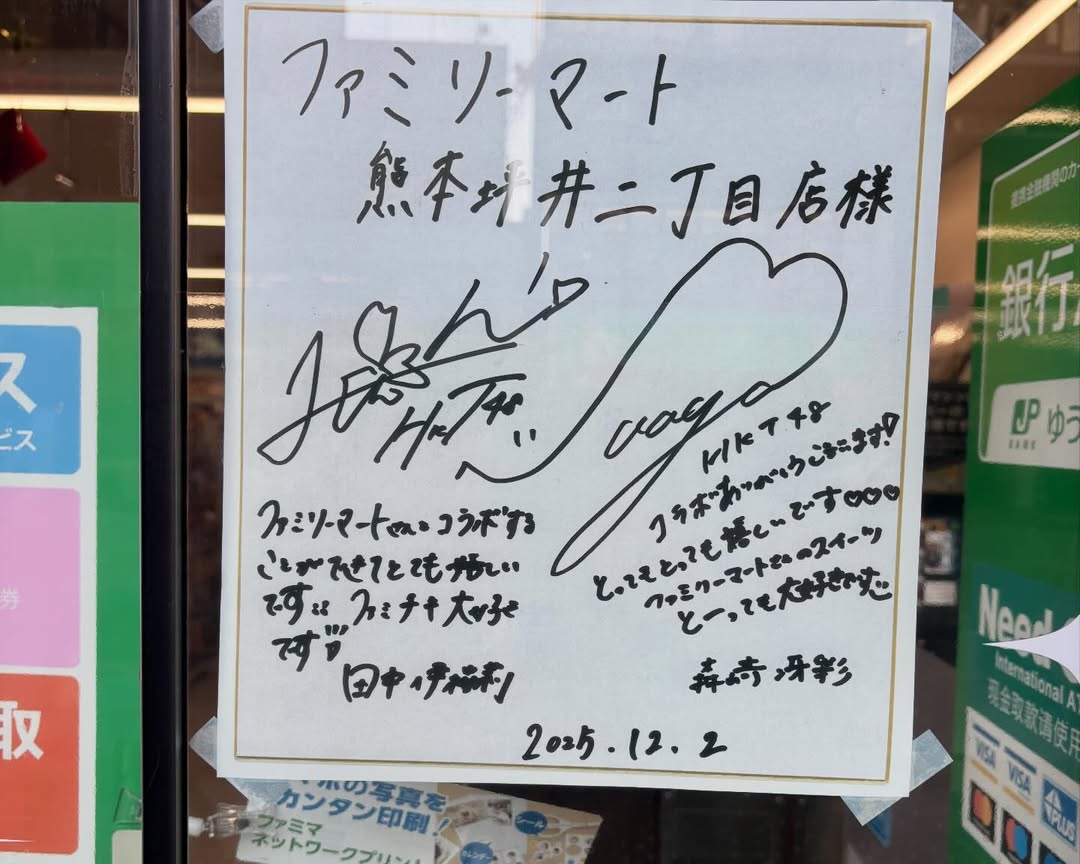 ファミリーマート
熊本坪井二丁目店様
HKT48
HKT48
コラボありがとうございます!
とってもとっても嬉しいです♡♡♡
ファミリーマートさんのスイーツ
とーっても大好きです
ファミリーマートさんとコラボする
ことができてとても嬉しい
です!! ファミチキ大好き
です!!!
田中伊桜莉
森﨑冴彩
2025.12.2
ス
ビス
券
取
の写真を
カンタン印刷!
ファミマ
ネットワークプリント
シール
カレンダー
提携金融機関のカー
銀行
JP
BANK
ゆう
Need
International AT
现金取款请使用
VISA
VISA
PLUS